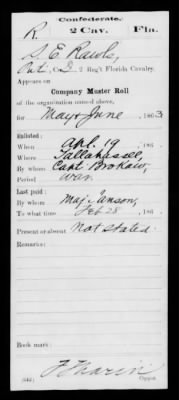 Confederate.
R. 2 Cav. Fla.
S. E. Rawls,
Pvt., Co. D, 2 Reg't Florida Cavalry.
Appears on
Company Muster Roll
of the organization named above,
for May & June, 1863
Enlisted:
When Apl. 19, 186 .
Where Tallahassee,
By whom Capt Brokaw,
Period war.
Last paid:
By whom Maj. Janson,
To what time Feb 28, 186 .
Present or absent Not stated.
Remarks:
Book mark:
(642) Copyist.